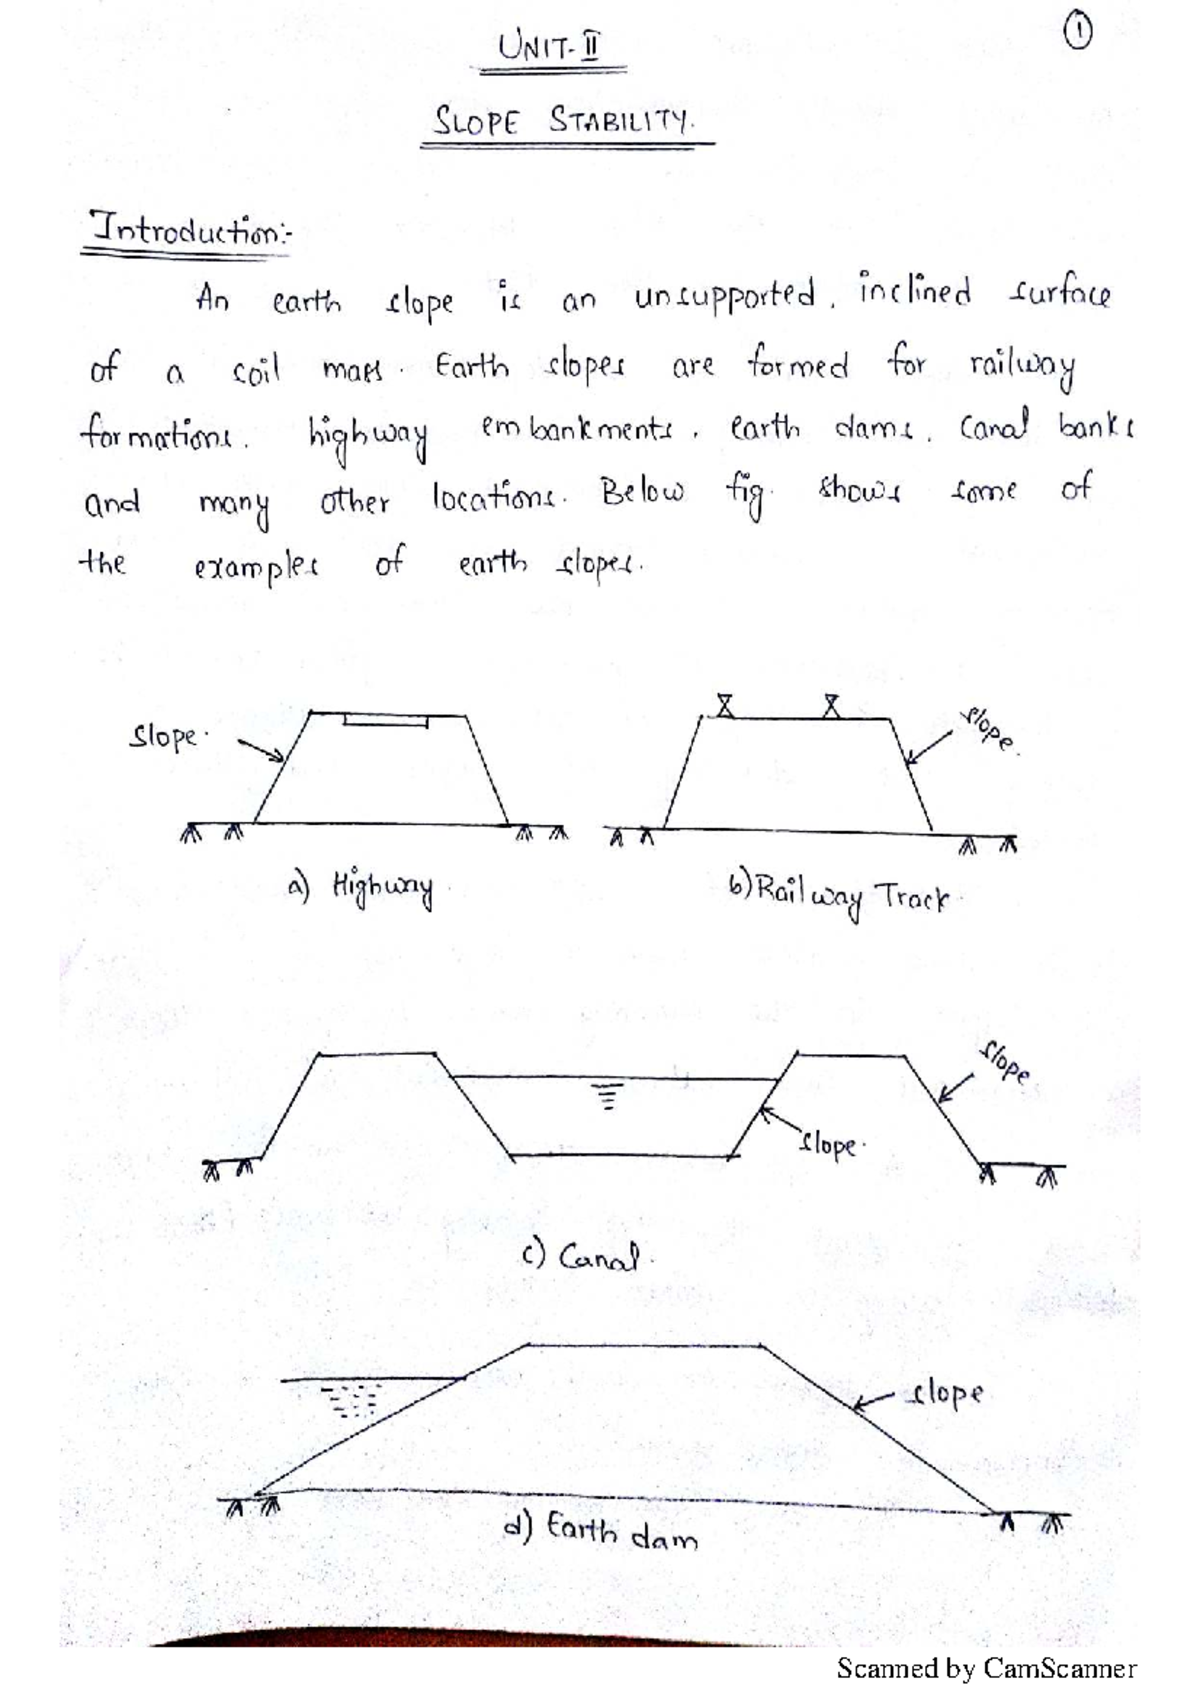 1
UNIT-II
SLOPE STABILITY.
Introduction:-
An earth slope is an unsupported, inclined surface
of a soil mass. Earth slopes are formed for railway
formations, highway embankments, earth dams, canal banks
and many other locations. Below fig. shows some of
the examples of earth slopes.
Slope.
slope.
a) Highway.
b) Railway Track.
slope
slope.
c) Canal.
slope
d) Earth dam
Scanned by CamScanner